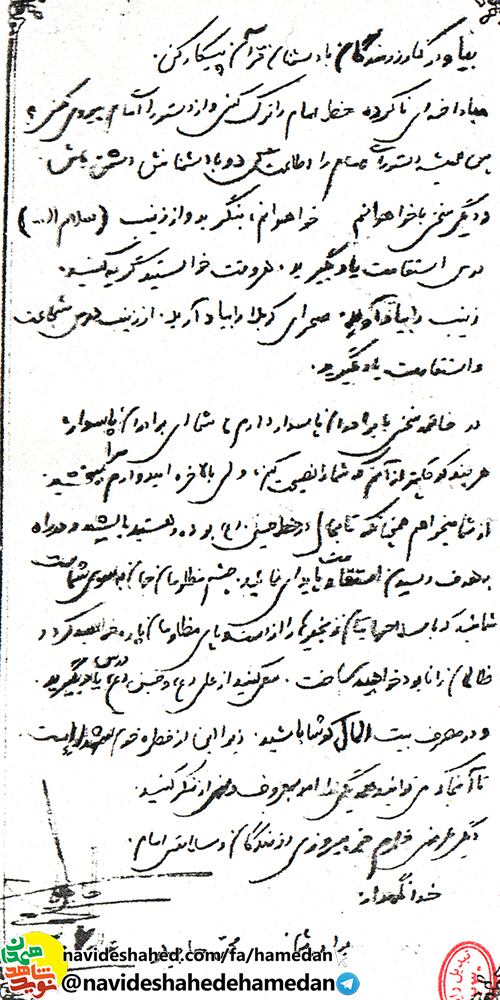 بیا و در کنار رزمندگان با دشمنان قرآن پیکار کن.
مبادا خدای ناکرده خط امام را ترک کنی و از دستورات امام پیروی نکنی؟
پس همیشه دستورات امام را اطاعت کن و با دشمنانش دشمن باش.
و دیگر سخنی با خواهرانم خواهرانم، بنگرید و از زینب (سلام ا...)
درس استقامت یاد بگیرید. هر وقت خواستید گریه کنید.
زینب را بیاد آورید. صحرای کربلا را بیاد آرید. از زینب درس شجاعت
و استقامت یاد بگیرید.
در خاتمه سخنی با برادران پاسدار دارم، شما ای برادران پاسدار،
هر چند کوچکتر از آنم که شما را نصیحت کنم، ولی بالاخره امیدوارم مرا ببخشید.
از شما میخواهم همچنانکه تابحال در خط حسین (ع) بوده و هستید باشید و در راه
به هدف رسیدن استقامت و پایداری نمائید. چشم مظلومان جهان بسوی شماست
شمائید که با سلاحهایتان زنجیرها را از دست و پای مظلومان پاره خواهید کرد و
ظالمان را نابود خواهید ساخت. سعی کنید از علی (ع) و حسین (ع) درس یاد بگیرید.
و در مصرف بیت المال کوشا باشید. زیرا این از قطره خون شهداست.
تا آنجا که می‌توانید همدیگر را امر بمعروف و نهی از منکر کنید.
دیگر عرضی ندارم جز پیروزی رزمندگان و سلامتی امام.
خدانگهدار.
برادر شما
navideshahed.com/fa/hamedan
@navideshahedehamedan
نوید شاهد همدان